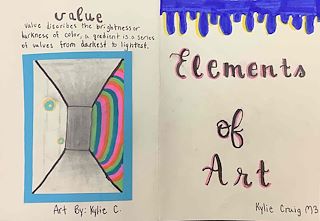 value
Value discribes the brightness or
darkness of color, a gradient is a series
of values from darkest to lightest.
Art By: Kylie C.
Elements
of
Art
Kylie Craig M3